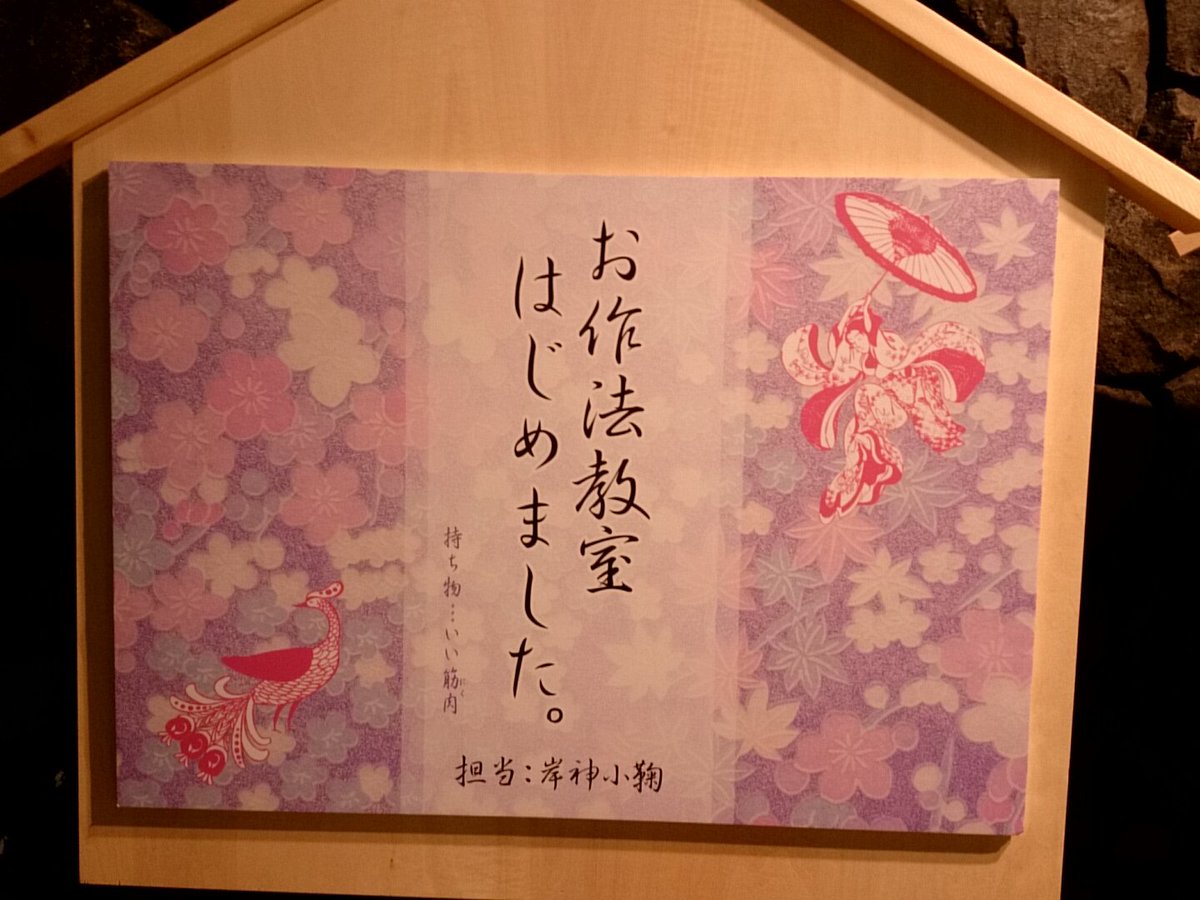 お作法教室
はじめました。
持ち物…いい筋肉
にく
担当：岸神小鞠